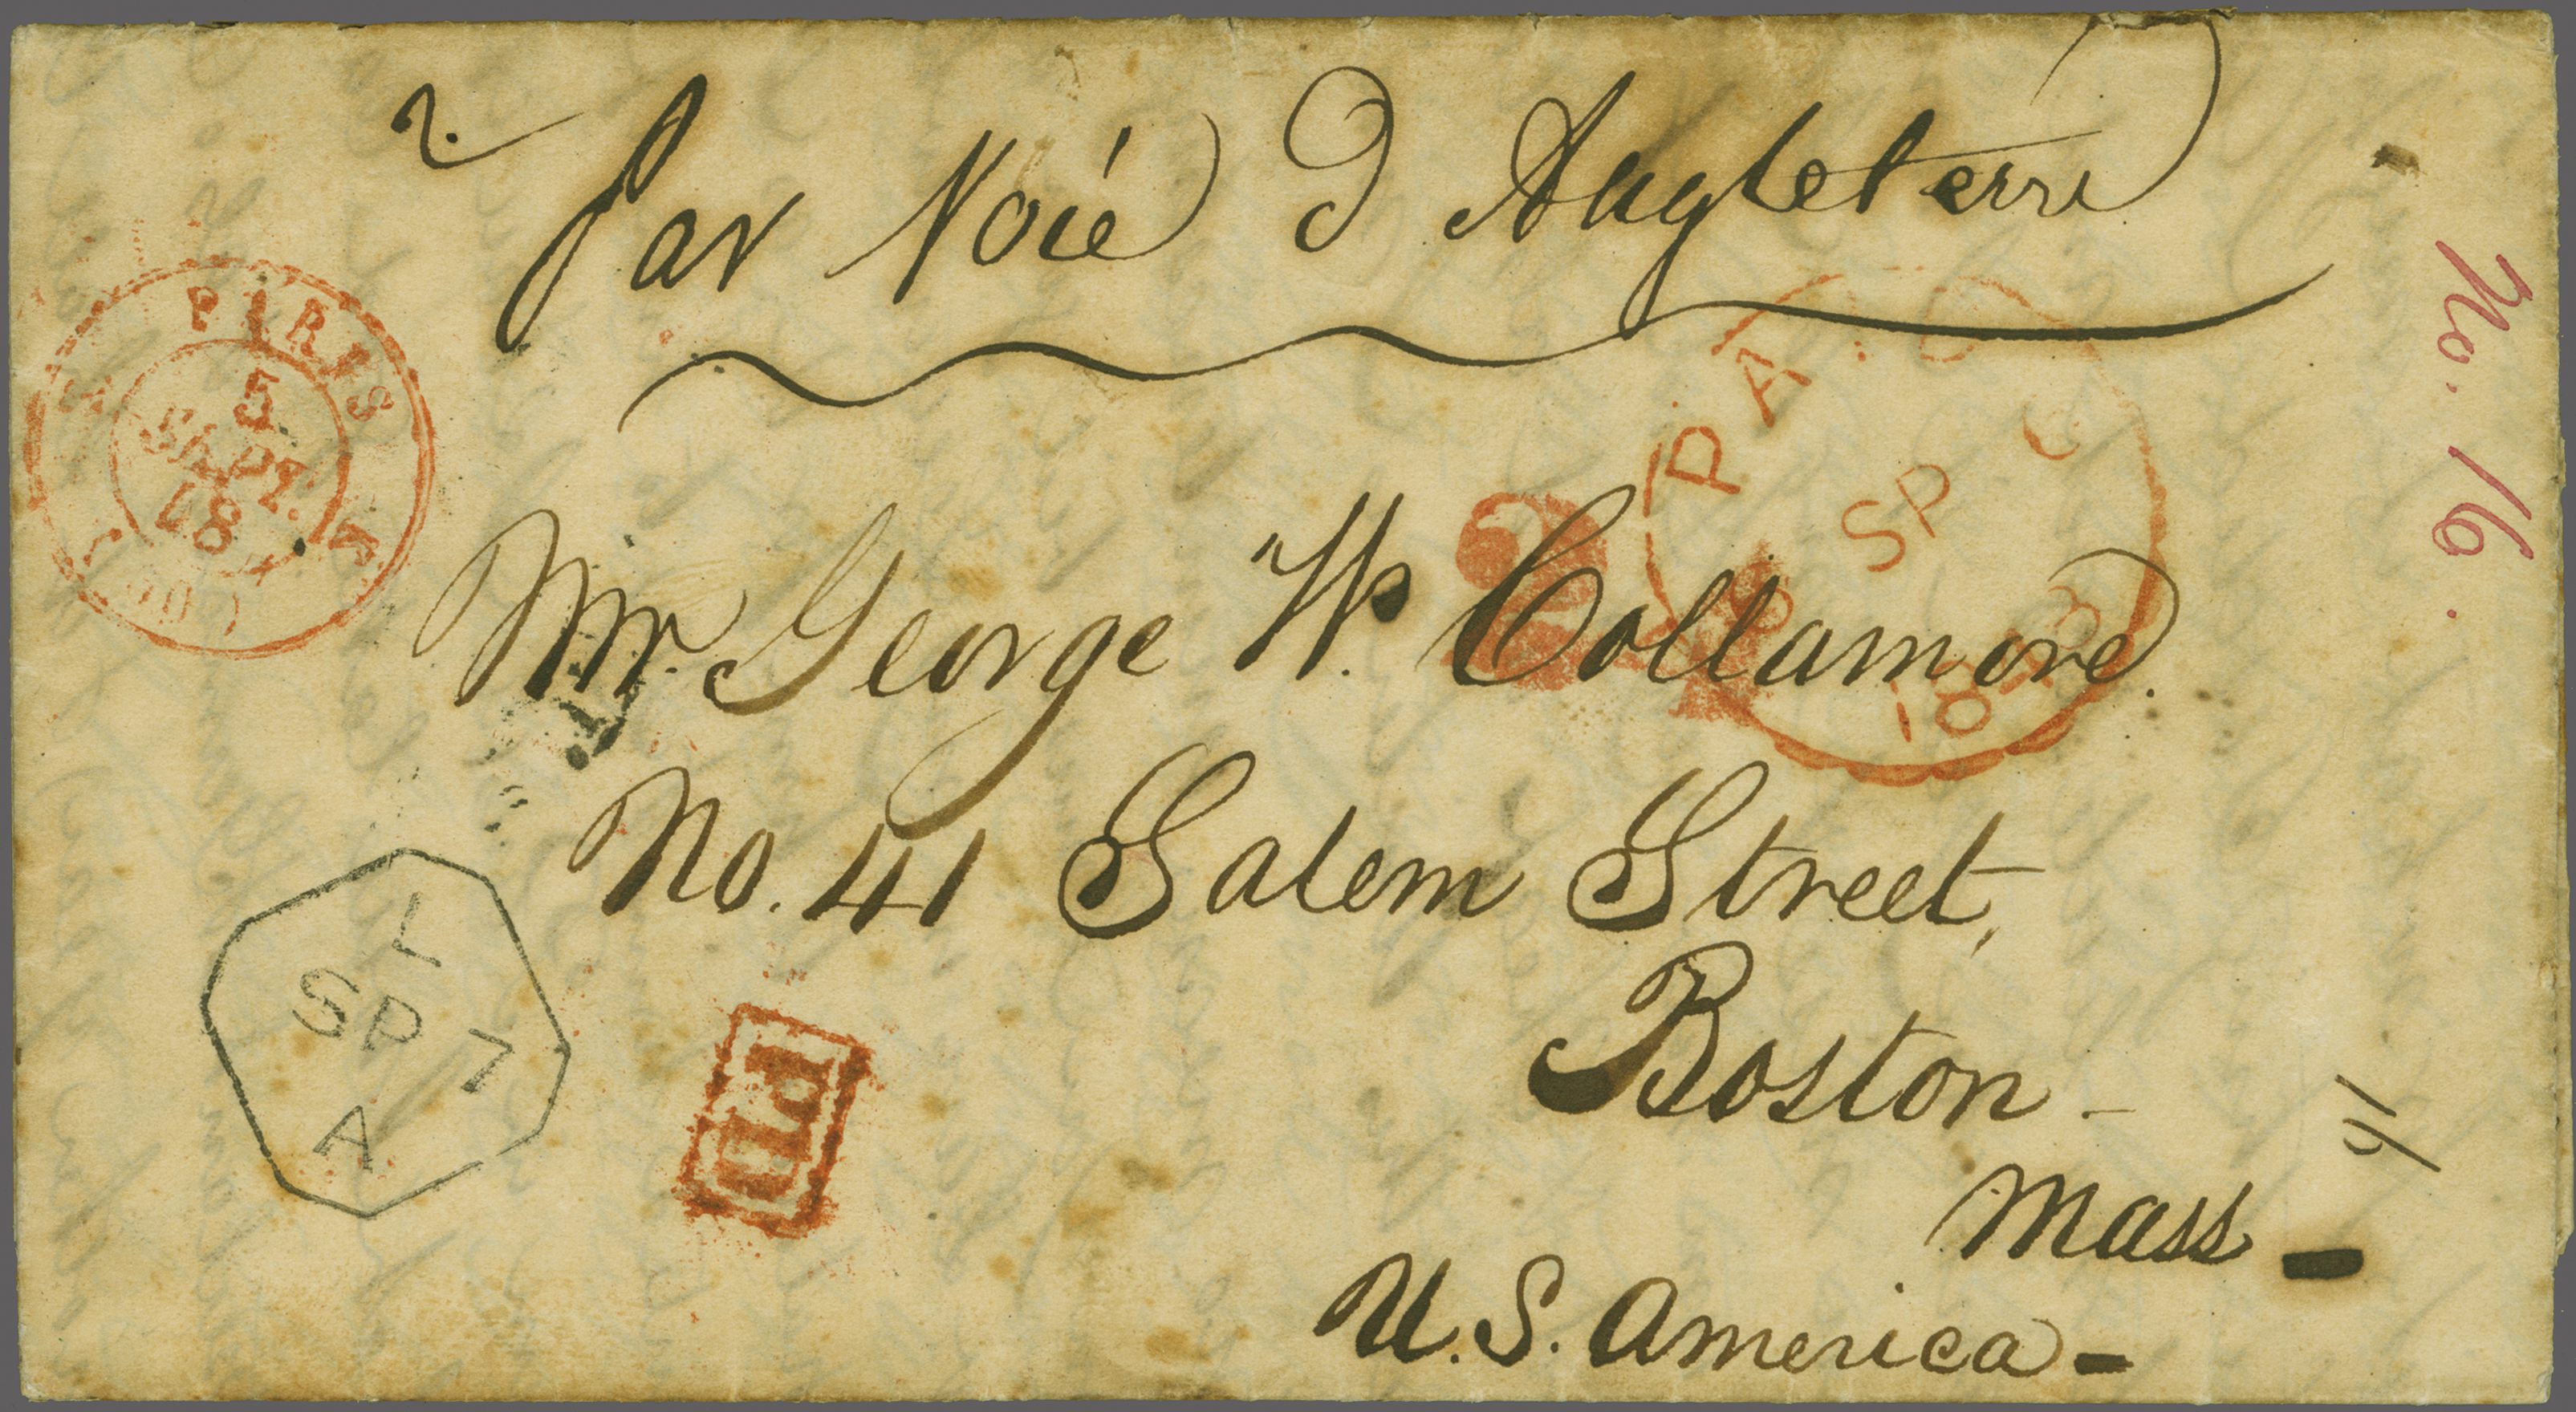 2.
Par Voié d Angleterre
No. 16.
PARIS
5
SEPT.
48
PAID
SP 6
1848
24
Mr George W. Collamore.
No. 41 Salem Street,
Boston -
Mass -
U. S. America -
L
SP 7
A
PD